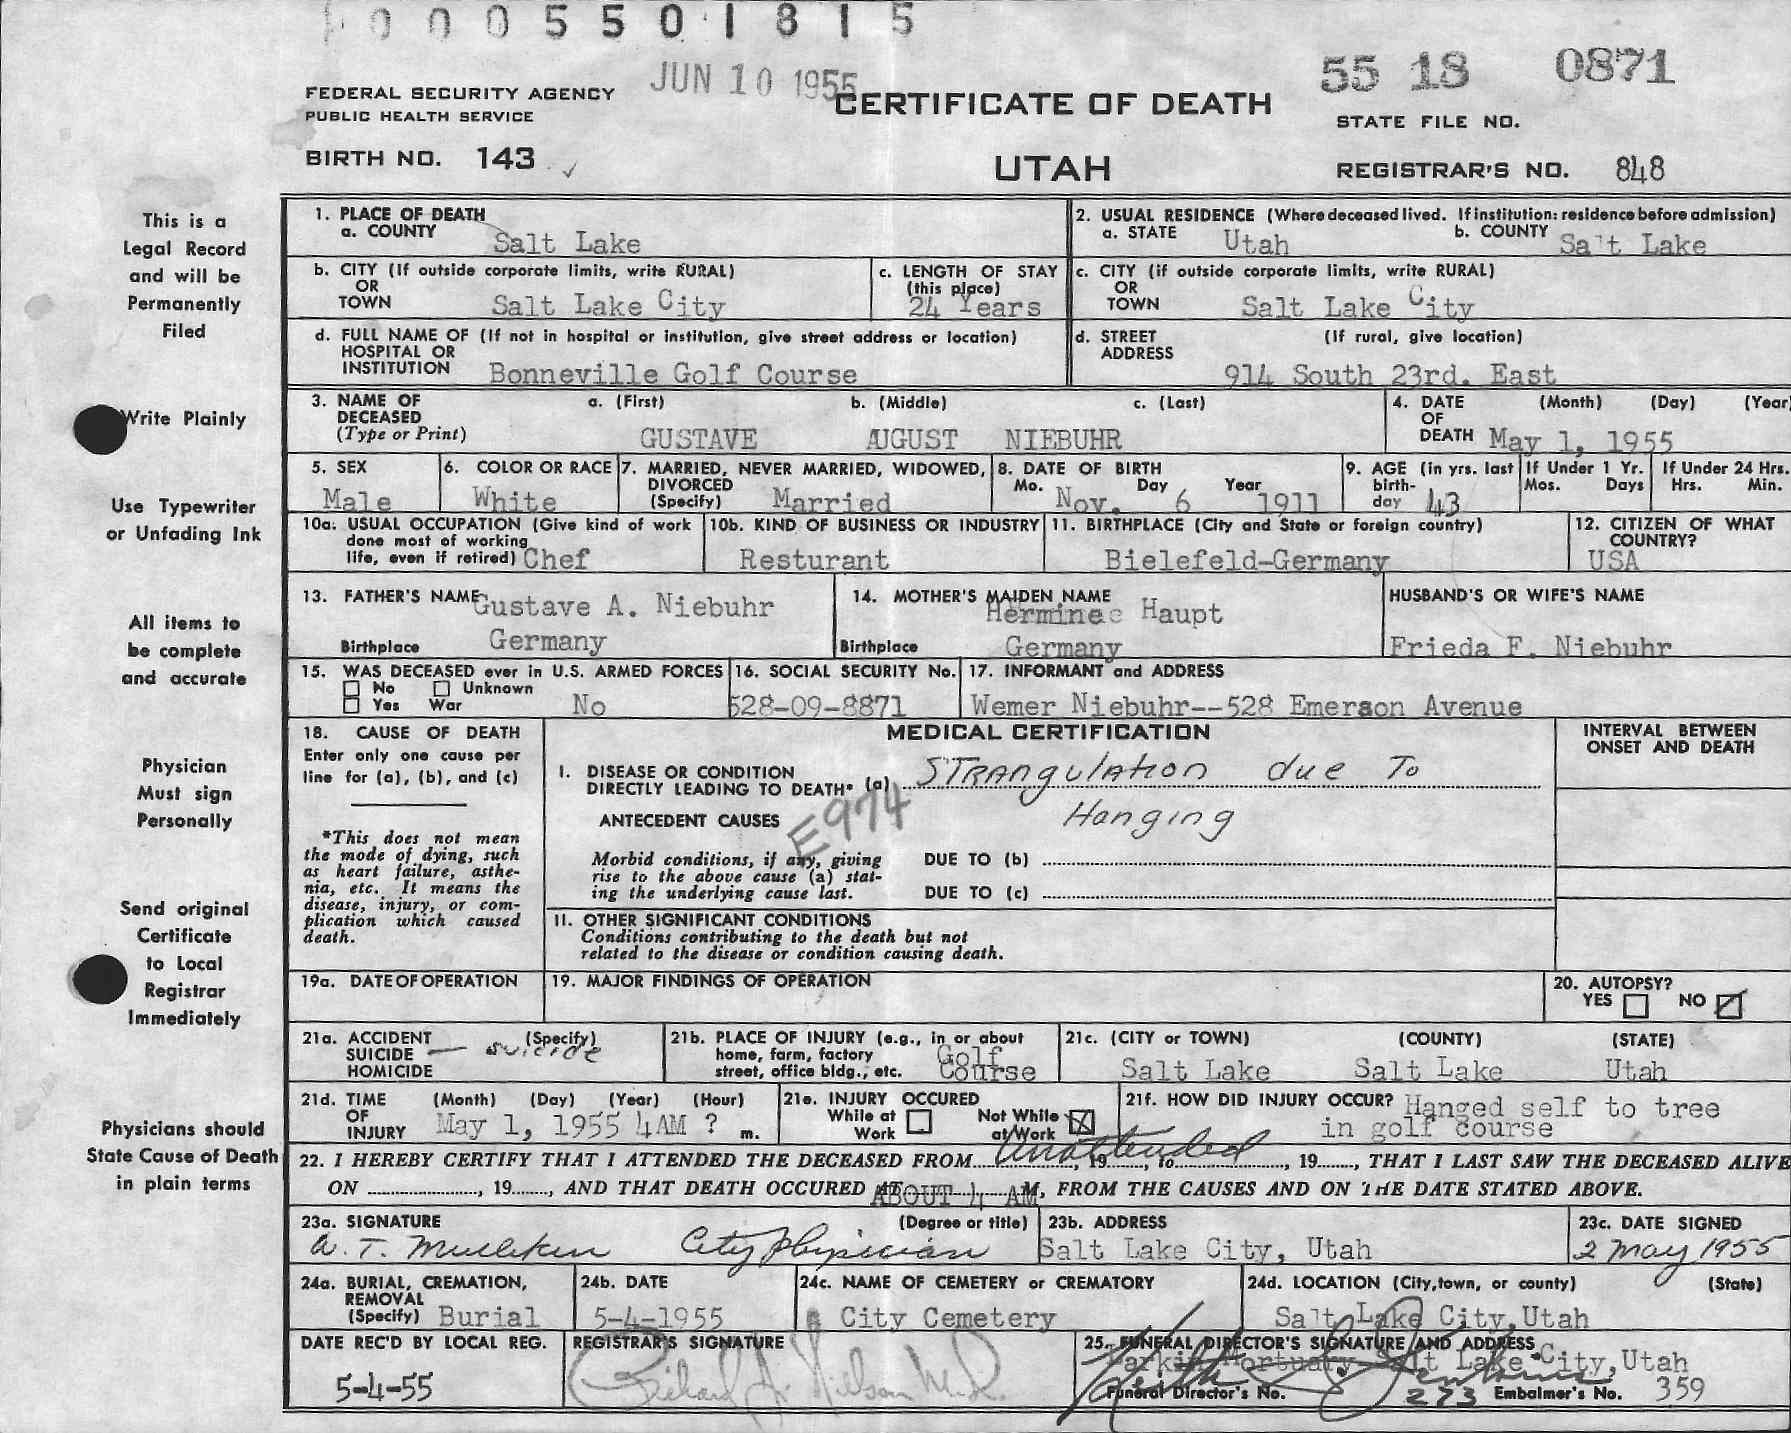 0 0 0 5 5 0 1 8 1 5
JUN 10 1955
55 18 0871
FEDERAL SECURITY AGENCY
PUBLIC HEALTH SERVICE
CERTIFICATE OF DEATH
STATE FILE NO.
BIRTH NO. 143
UTAH
REGISTRAR'S NO. 848
This is a
Legal Record
and will be
Permanently
Filed
Write Plainly
Use Typewriter
or Unfading Ink
All items to
be complete
and accurate
Physician
Must sign
Personally
Send original
Certificate
to Local
Registrar
Immediately
Physicians should
State Cause of Death
in plain terms
1. PLACE OF DEATH
a. COUNTY Salt Lake
2. USUAL RESIDENCE (Where deceased lived. If institution: residence before admission)
a. STATE Utah b. COUNTY Salt Lake
b. CITY (If outside corporate limits, write RURAL)
OR
TOWN Salt Lake City
c. LENGTH OF STAY
(this place)
24 Years
c. CITY (if outside corporate limits, write RURAL)
OR
TOWN Salt Lake City
d. FULL NAME OF (If not in hospital or institution, give street address or location)
HOSPITAL OR
INSTITUTION Bonneville Golf Course
d. STREET (If rural, give location)
ADDRESS
914 South 23rd. East
3. NAME OF a. (First) b. (Middle) c. (Last)
DECEASED
(Type or Print) GUSTAVE AUGUST NIEBUHR
4. DATE (Month) (Day) (Year)
OF
DEATH May 1, 1955
5. SEX
Male
6. COLOR OR RACE
White
7. MARRIED, NEVER MARRIED, WIDOWED,
DIVORCED
(Specify) Married
8. DATE OF BIRTH
Mo. Day Year
Nov. 6 1911
9. AGE (in yrs. last
birth-
day 43
If Under 1 Yr.
Mos. Days
If Under 24 Hrs.
Hrs. Min.
10a. USUAL OCCUPATION (Give kind of work
done most of working
life, even if retired) Chef
10b. KIND OF BUSINESS OR INDUSTRY
Resturant
11. BIRTHPLACE (City and State or foreign country)
Bielefeld-Germany
12. CITIZEN OF WHAT
COUNTRY?
USA
13. FATHER'S NAME Gustave A. Niebuhr
Birthplace Germany
14. MOTHER'S MAIDEN NAME
Herminec Haupt
Birthplace Germany
HUSBAND'S OR WIFE'S NAME
Frieda F. Niebuhr
15. WAS DECEASED ever in U.S. ARMED FORCES
No Unknown
Yes War No
16. SOCIAL SECURITY No.
528-09-8871
17. INFORMANT and ADDRESS
Wemer Niebuhr--528 Emerson Avenue
18. CAUSE OF DEATH
Enter only one cause per
line for (a), (b), and (c)
*This does not mean
the mode of dying, such
as heart failure, asthe-
nia, etc. It means the
disease, injury, or com-
plication which caused
death.
MEDICAL CERTIFICATION
INTERVAL BETWEEN
ONSET AND DEATH
I. DISEASE OR CONDITION
DIRECTLY LEADING TO DEATH* (a) Strangulation due To
Hanging
E974
ANTECEDENT CAUSES
Morbid conditions, if any, giving
rise to the above cause (a) stat-
ing the underlying cause last.
DUE TO (b)
DUE TO (c)
II. OTHER SIGNIFICANT CONDITIONS
Conditions contributing to the death but not
related to the disease or condition causing death.
19a. DATE OF OPERATION
19. MAJOR FINDINGS OF OPERATION
20. AUTOPSY?
YES NO
21a. ACCIDENT (Specify)
SUICIDE — suicide
HOMICIDE
21b. PLACE OF INJURY (e.g., in or about
home, farm, factory
street, office bldg., etc. Golf
Course
21c. (CITY or TOWN) (COUNTY) (STATE)
Salt Lake Salt Lake Utah
21d. TIME (Month) (Day) (Year) (Hour)
OF
INJURY May 1, 1955 4AM ? m.
21e. INJURY OCCURED
While at
Work
Not While
at Work
21f. HOW DID INJURY OCCUR? Hanged self to tree
in golf course
22. I HEREBY CERTIFY THAT I ATTENDED THE DECEASED FROM Unattended, 19, to, 19, THAT I LAST SAW THE DECEASED ALIVE
ON, 19, AND THAT DEATH OCCURED AT ABOUT 4 AM M, FROM THE CAUSES AND ON THE DATE STATED ABOVE.
23a. SIGNATURE (Degree or title)
A. T. Mulliken City Physician
23b. ADDRESS
Salt Lake City, Utah
23c. DATE SIGNED
2 May 1955
24a. BURIAL, CREMATION,
REMOVAL
(Specify) Burial
24b. DATE
5-4-1955
24c. NAME OF CEMETERY or CREMATORY
City Cemetery
24d. LOCATION (City, town, or county) (State)
Salt Lake City, Utah
DATE REC'D BY LOCAL REG.
5-4-55
REGISTRAR'S SIGNATURE
Richard A. Nielson M.D.
25. FUNERAL DIRECTOR'S SIGNATURE AND ADDRESS
Larkin Mortuary Salt Lake City, Utah
Funeral Director's No. 273 Embalmer's No. 359